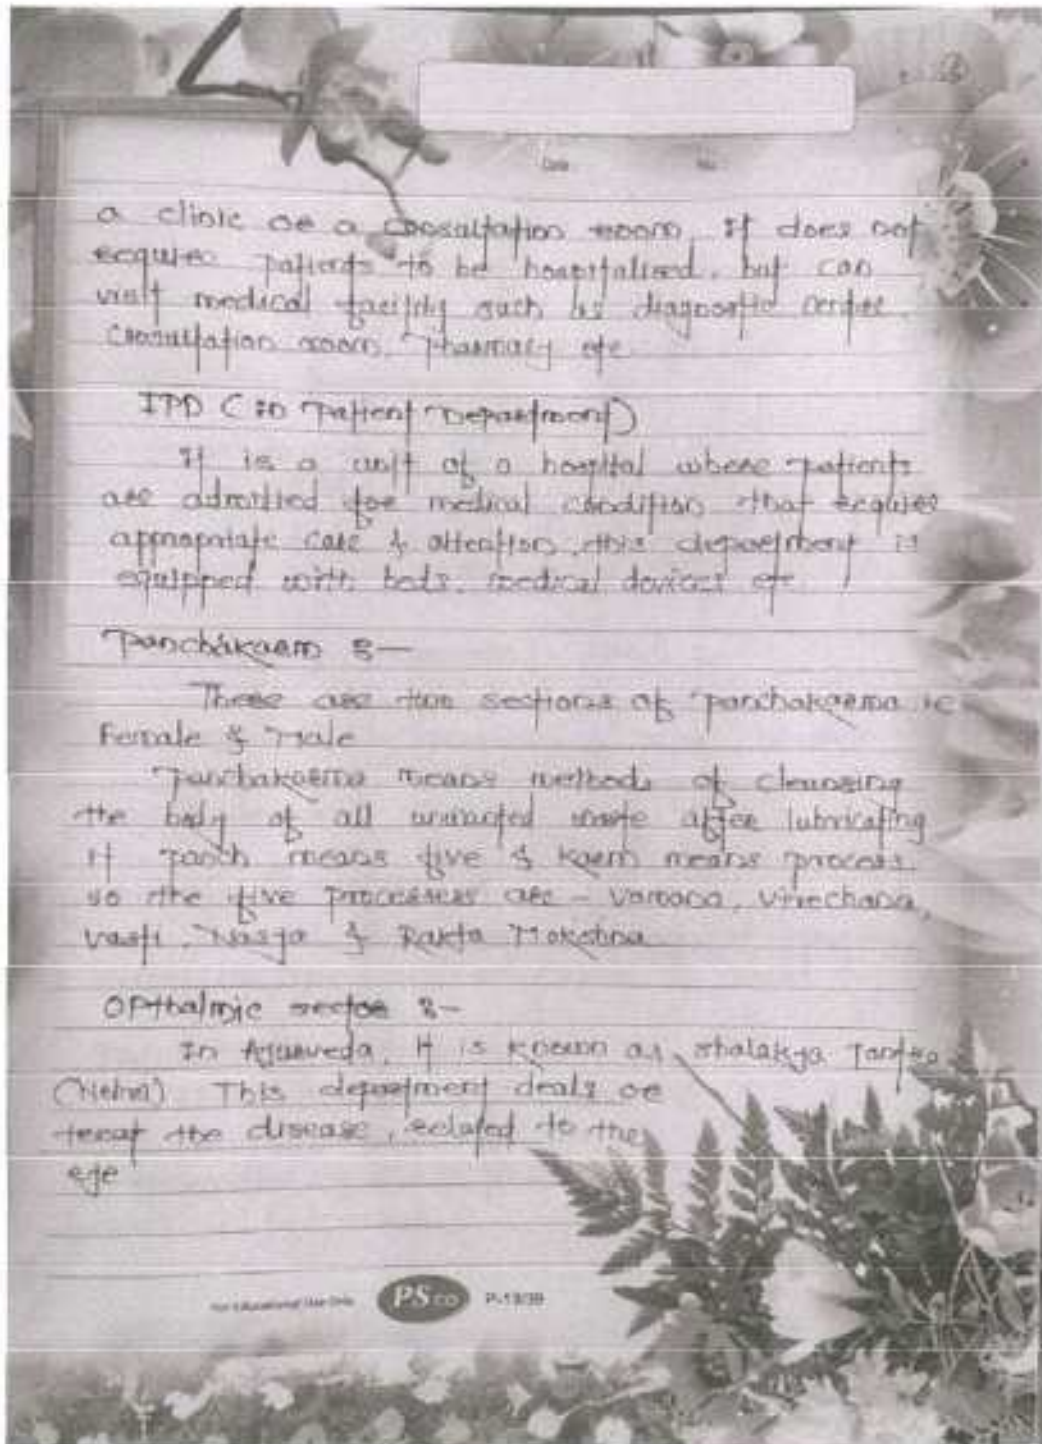 Date No.
a clinic or a consultation room, it does not
require patients to be hospitalised. but can
visit medical facility such as diagnostic centre,
Consultation room, Pharmacy etc
IPD (in Patient Department)
It is a unit of a hospital where patients
are admitted for medical condition that require
appropriate care & attention, this department is
equipped with beds, medical devices etc
Panchakarm :-
There are two sections of panchakarma ie
Female & Male
Panchakarma means methods of cleansing
the body of all unwanted waste after lubricating
it panch means five & karm means process.
so the five processes are - Vamana, Virechana,
Vasti, Nasya & Rakta Mokshna
Opthalmic sector :-
In Ayurveda, it is known as shalakya Tantra
(Netra) This department deals or
treat the disease, related to the
eye
For Educational Use Only PS CO P-19/39